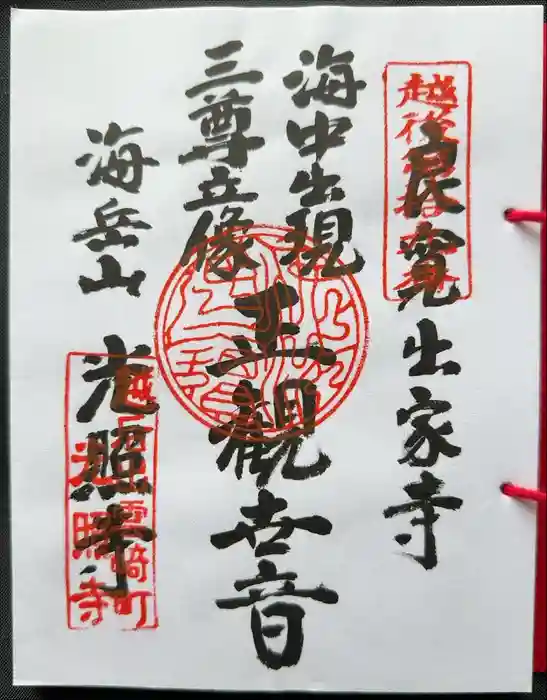 越後
良寛出家寺
海中出現
三尊立像
正觀世音
海岳山
光照寺
雲崎町
光照寺